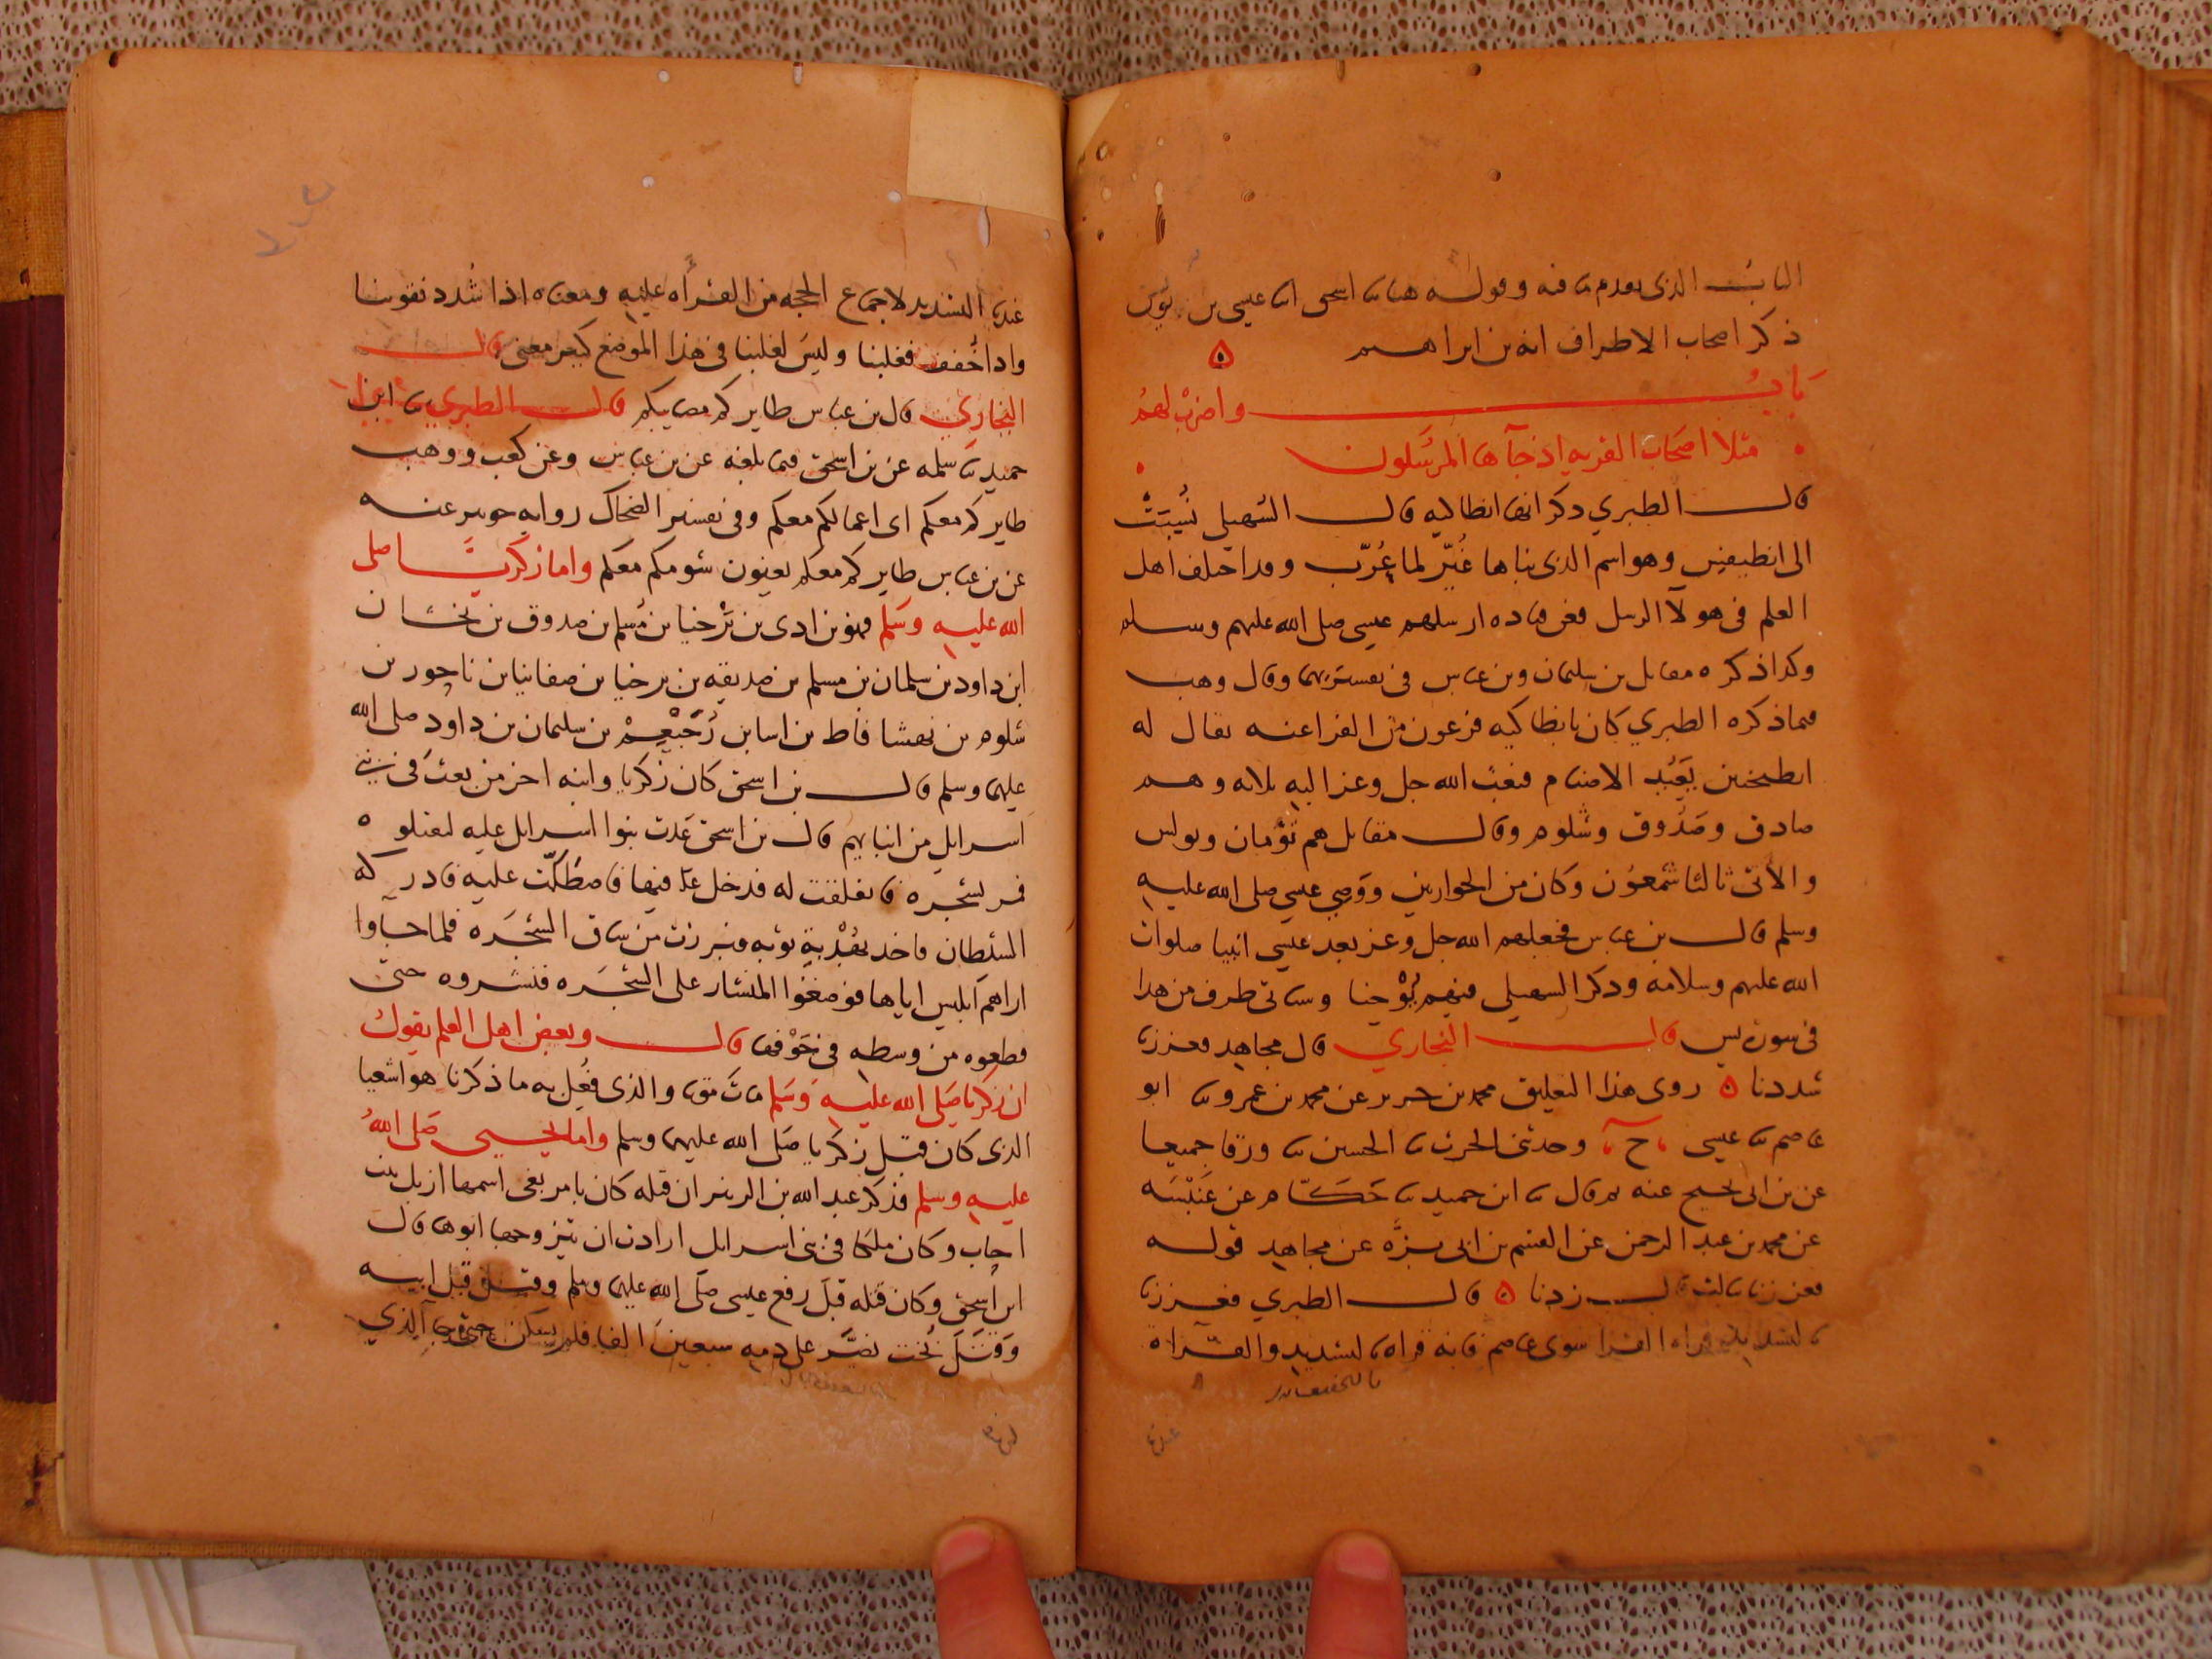 البابُ الذى تقدم ما فيه وقوله هنا ما اسحق انا عيسى بن يونس
ذكر اصحاب الاطراف انه بن ابراهيم ه
بابُ واضربْ لهمُ
مثلا اصحَابَ القريه اذ جآها المرسَلون
قال الطبري ذكر انها انطاكيه قال السُهيلي نُسِبَتْ
الى انطيقيس وهو اسم الذى بناها غُيّر لما عُرّب وقد اختلف اهل
العلم فى هولآ الرسل فعن قتاده ارسلهم عيسى صلى الله عليهم وسلم
وكذا ذكره مقاتل بن سليمان وبن عباس فى تفسيريهما وقال وهب
فيما ذكره الطبري كان بانطاكيه فرعون من الفراعنه يقال له
انطيخس يَعْبُد الاصنام فبعث الله جل وعز اليه ثلاثه وهم
صادق وصَدُوق وشلوم وقال مقاتل هم تُوْمان وبولس
والآتى ثالثا شمعُون وكان من الحوارين ووَصِي عيسى صلى الله عليه
وسلم قال بن عباس فجعلهم الله جل وعز بعد عيسى انبيا صلوات
الله عليهم وسلامه وذكر السهيلي فيهم يُوْحَنا وسياتى طرف من هذا
فى سورة يس قال البخاري قال مجاهد فعززنا
شددنا ه روى هذا التعليق محمد بن جرير عن محمد بن عمرو ما ابو
عاصم ما عيسى ح وحدثنى الحرث ما الحسن ما ورقا جميعا
عن بن ابى نجيح عنه قال ما ابن حميد ما حَكّام عن عَنْبَسَه
عن محمد بن عبد الرحمن عن القسم بن ابى بزّه عن مجاهد قوله
فعززنا بثالث زدنا ه قال الطبري فعززنا
بالتشديد قراه القرا سوى عاصم فانه قراه بالتشديد والقراة
بالتخفيف
عندنا التشديد لاجماع الحجه من القرأه عليه ومعناه اذا شُدد فقوينا
واذا خُفف فغلبنا وليسَ لغلبنا فى هذا الموضع كبير معنى قال
البخاري قال بن عباس طايركم مصايبكم قال الطبري ما ابن
حميد ما سلمه عن بن اسحق فيما بلغه عن بن عباس وعن كعب ووهب
طايركم معكم اى اعمالكم معكم وفى تفسير الضحاك روايه جويبر عنه
عن بن عباس طايركم معكم يعنون شومكم معكم واما زكريَّا صلى
الله عليه وسَلم فهو بن ادى بن بَرْخيا بن مُسلم بن صدوق بن نخشان
ابن داود بن سلمان بن مسلم بن صديقه بن برخيا بن صفانيا بن ناحور بن
شلوم بن نهفشا فاط بن اسا بن رُحَبْعِمْ بن سليمان بن داود صلى الله
عليهما وسلم قال بن اسحق كان زكريا وابنه اخر من بعث فى بنى
اسرايل من انبيايهم قال بن اسحق عَدَت بنوا اسرايل عليه ليقتلوه
فمر بشجره فانفلقت له فدخل فيها فاصطَكّت عليه فادركه
الشيطان فاخذ بهُدْبةِ ثوبه فبرزت من ساق الشجَره فلما جاوا
اراهم ابليس اياها فوضعُوا المنشار على الشجَره فنشروه حتى
قطعوه من وسطه فى جَوْفها قال وبعض اهل العلم يقول
ان زكريا صَلى الله عليه وَسَلم ماتَ موتا والذى فُعل به ما ذكرنا هو اشعيا
الذى كان قبل زكريا صَلى الله عليهما وسلم واما يحيى صَلى اللهُ
عليه وسلم فذكر عبد الله بن الزبير ان قتله كان بامر بغى اسمها ازبل بنت
احاب وكان ملكا فى بنى اسرايل ارادت ان يتزوجها ابوها قال
ابن اسحق وكان قتله قبل رفع عيسى صَلى الله عليهما وسلم وقتل قبل ابيه
وَقتَل بُخت نصَّر على دمه سبعينَ الفا فلم يسكن حتى جآ الذي